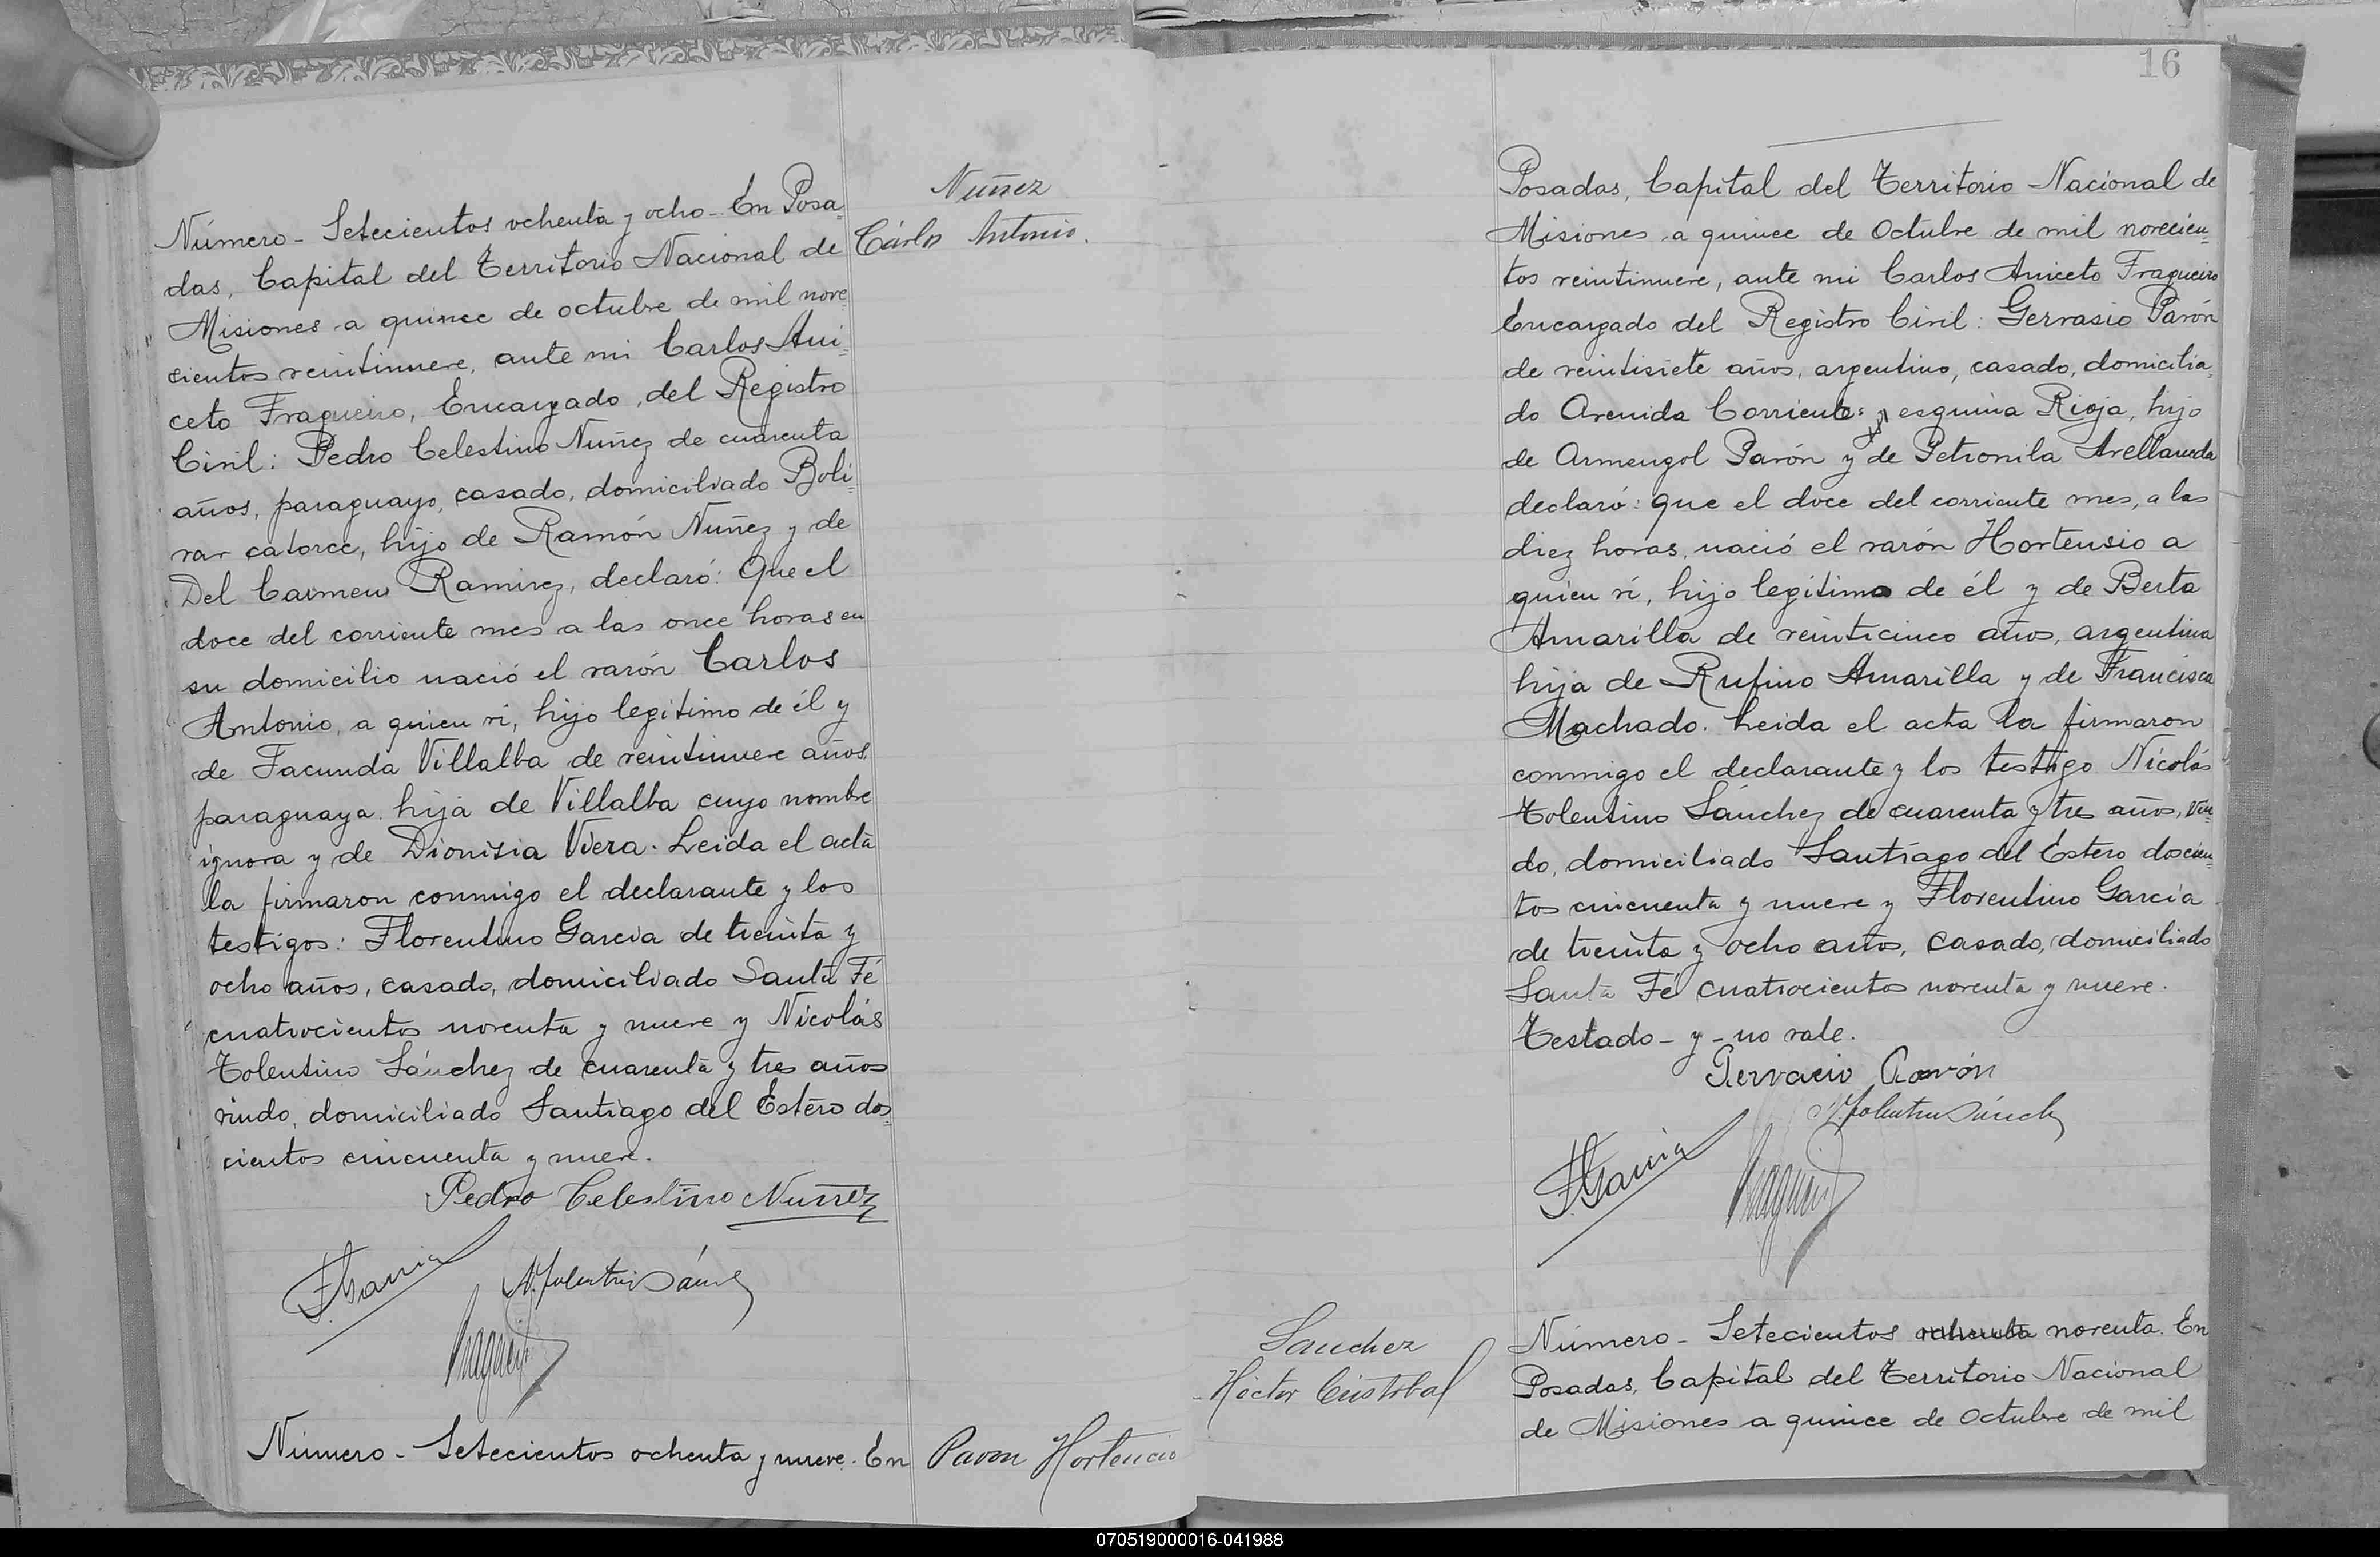 Número - Setecientos ochenta y ocho - En Posa=
das, Capital del Territorio Nacional de
Misiones a quince de octubre de mil nove=
cientos veintinueve, ante mi Carlos Ani=
ceto Fragueiro, Encargado del Registro
Civil: Pedro Celestino Nuñez de cuarenta
años, paraguayo, casado, domiciliado Bolí=
var catorce, hijo de Ramón Nuñez y de
Del Carmen Ramirez, declaró: Que el
doce del corriente mes a las once horas en
su domicilio nació el varón Carlos
Antonio, a quien ví, hijo legítimo de él y
de Facunda Villalba de veintinueve años,
paraguaya, hija de Villalba cuyo nombre
ignora y de Dionisia Viera. Leida el acta
la firmaron conmigo el declarante y los
testigos: Florentino García de treinta y
ocho años, casado, domiciliado Santa Fé
cuatrocientos noventa y nueve y Nicolás
Tolentino Sánchez de cuarenta y tres años
viudo, domiciliado Santiago del Estero dos=
cientos cincuenta y nueve.
Pedro Celestino Nuñez
F. Garcia
N. Tolentino Sánchez
Fragueiro
Número - Setecientos ochenta y nueve. En
Nuñez
Cárlos Antonio.
Pavon Hortencio
16
Posadas, Capital del Territorio Nacional de
Misiones a quince de Octubre de mil novecien=
tos veintinueve, ante mi Carlos Aniceto Fragueiro
Encargado del Registro Civil: Gervasio Pavón
de veintisiete años, argentino, casado, domicilia=
do Avenida Corrientes y esquina Rioja, hijo
de Armengol Pavón y de Petronila Avellaneda
declaró: que el doce del corriente mes, a las
diez horas, nació el varón Hortensio a
quien ví, hijo legítimo de él y de Berta
Amarilla de veinticinco años, argentina
hija de Rufino Amarilla y de Francisca
Machado. Leida el acta la firmaron
conmigo el declarante y los testigo Nicolás
Tolentino Sánchez de cuarenta y tres años, viu=
do, domiciliado Santiago del Estero doscien=
tos cincuenta y nueve y Florentino García
de treinta y ocho años, casado, domiciliado
Santa Fé cuatrocientos noventa y nueve.
Testado - y - no vale.
Gervacio Pavón
N. Tolentino Sánchez
F. Garcia
Fragueiro
Sanchez
Héctor Cristobal
Número - Setecientos ochenta noventa. En
Posadas, Capital del Territorio Nacional
de Misiones a quince de Octubre de mil
070519000016-041988